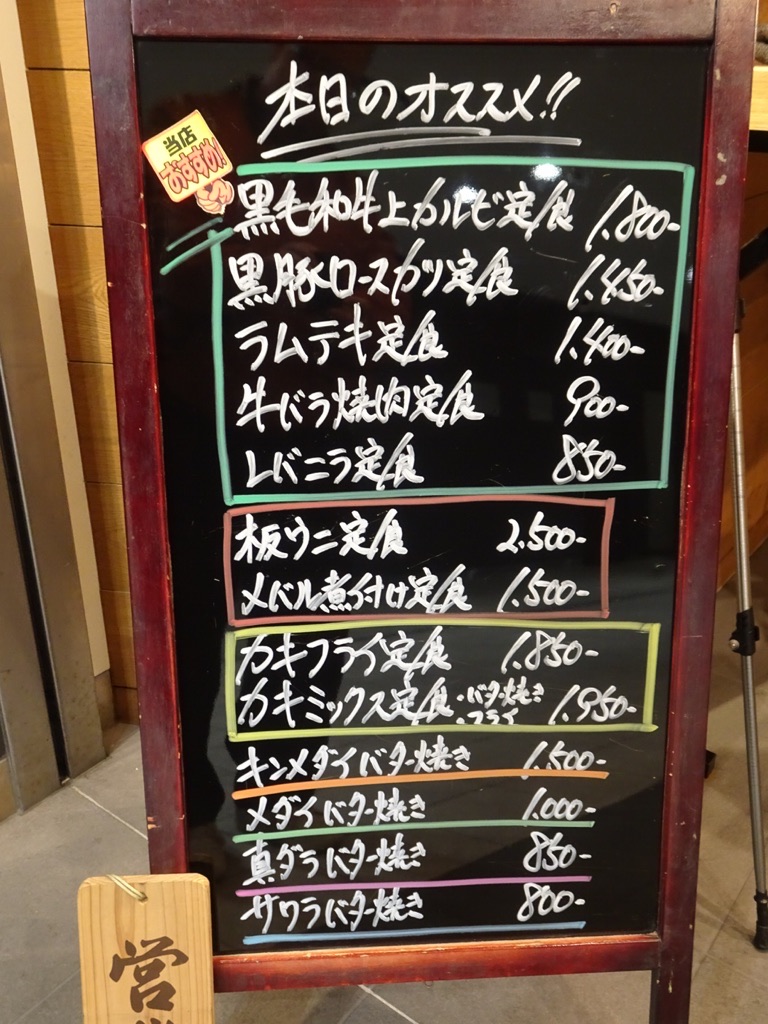 本日のオススメ!!
当店
おすすめ!
黒毛和牛上カルビ定食 1.800-
黒豚ロースカツ定食 1.450-
ラムテキ定食 1.400-
牛バラ焼肉定食 900-
レバニラ定食 850-
板ウニ定食 2.500-
メバル煮付け定食 1.500-
カキフライ定食 1.850-
カキミックス定食 ・バター焼き ・フライ 1.950-
キンメダイバター焼き 1.500-
メダイバター焼き 1.000-
真ダラバター焼き 850-
サワラバター焼き 800-
営